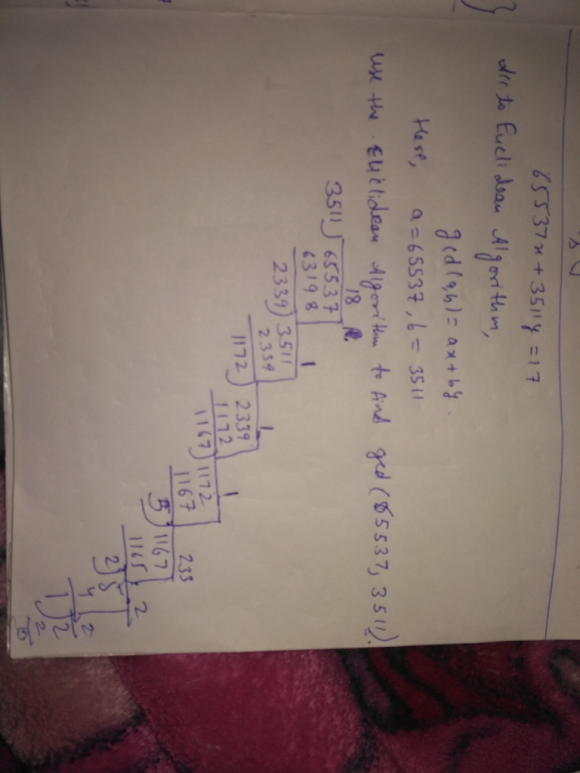 65537x + 3511y = 17
Acc to Euclidean Algorithm,
gcd(a,b) = ax + by.
Here, a = 65537, b = 3511
use the Euclidean Algorithm to find gcd(65537, 3511).
18
3511) 65537
63198
2339) 3511 1
2339
1172) 2339 1
1172
1167) 1172 1
1167
5) 1167 233
1165
2) 5 2
4
1) 2 2
2